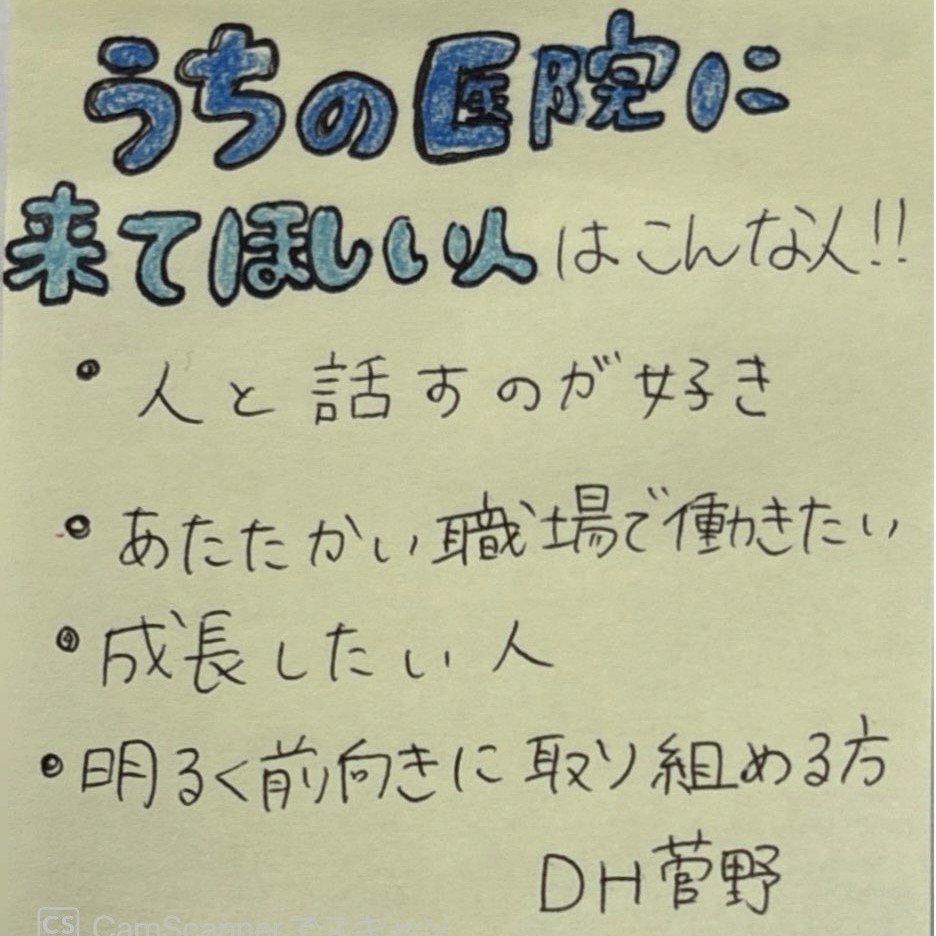 うちの医院に
来てほしい人はこんな人!!
• 人と話すのが好き
• あたたかい職場で働きたい
• 成長したい人
• 明るく前向きに取り組める方
DH菅野
CS CamScannerでスキャン